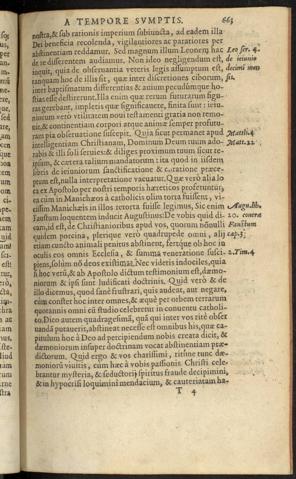 A TEMPORE SVMPTIS. 663
nostra, & sub rationis imperium subiuncta, ad eadem illa
Dei beneficia recolenda, vigilantiores ac paratiores per
abstinentiam reddamur. Sed magnum illum Leonem hac
Leo ser. 4.
de re disserentem audiamus. Non ideo negligendum est,
de ieiunio
inquit, quia de obseruantia veteris legis assumptum est,
decimi men
tanquam hoc de illis sit, quæ inter discretiones ciborum,
sis.
inter baptismatum differentias &
esse desierint. Illa enim quæ
gerebant, impletis quæ significauere, finita sunt: ieiu-
niorum verò vtilitatem noui testamenti gratia non remo-
uit, & continentiam corpori atque animæ semper profutu-
ram pia obseruatione suscepit. Quia sicut permanet apud
intelligentiam Christianam, Dominum Deum tuum ado-
Matth. 4
rabis & illi soli seruies: & diliges proximum tuum sicut te-
Matt. 22.
ipsum, & cætera talium mandatorum: ita quod in iisdem
libris de ieiuniorum sanctificatione &
est, nulla interpretatione vacuatur. Quæ verò alia lo
ca ex Apostolo per nostri temporis hæreticos proferuntur,
ea cum in Manichæos à catholicis olim torta fuissent, vi-
cissim Manichæis in illos retorta fuisse legimus. Sic enim
Faustum loquentem inducit Augustinus: De vobis quid di-
August. lib.
cam, id est, de Christianoribus apud vos, quorum nonnulli
20. contra
quidem porcina, plerique verò quadrupede omni, alij
Faustum
etiam cuncto animali penitus abstinent, ferturque ob hoc in
cap. 5.
oculis eos omnis Ecclesia, & summa veneratione susci-
piens, solùm nō deos existimat. Nec videris indoceles, quia
2. Tim. 4
si hoc verū, & ab Apostolo dictum testimonium est, dæmo-
niorum & ipsi sunt ludificati doctrinis. Quid verò & de
illo dicemus, quod sanè frustrari, quis audeat, aut negare,
cùm constet hoc inter omnes, & æquè per orbem terrarum
quotannis omni cū studio celebretur in conuentu catholi-
co. Dico autem quadragesimā, quā qui inter vos ritè obser
uandā putauerit, abstineat necesse est omnibus his, quæ ca-
pitulum hoc à Deo ad percipiendum nobis creata dicit, &
dæmoniorum insuper doctrinam vocat abstinentiam præ-
dictorum. Quid ergo & vos charissimi, ritene tunc dæ-
moniorū viuitis, cum hæc à vobis passionis Christi cele-
brantur mysteria, & seductorij spiritus fraude decipimini,
& in hypocrisi loquimini mendacium, & cauteriatam ha-
T 4